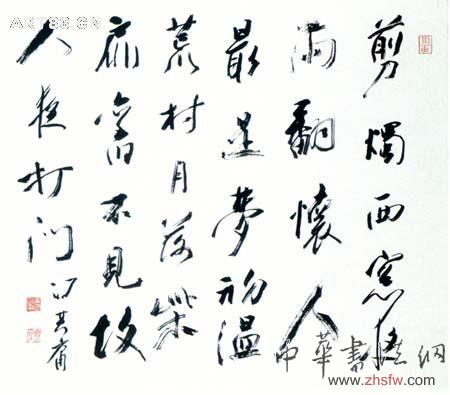 ART86.CN
剪燭西窓夜
雨翻懷人
最是夢初溫
荒村月落柴
扉不見故
人夜打門 馮其庸
中華書法網
www.zhsfw.com